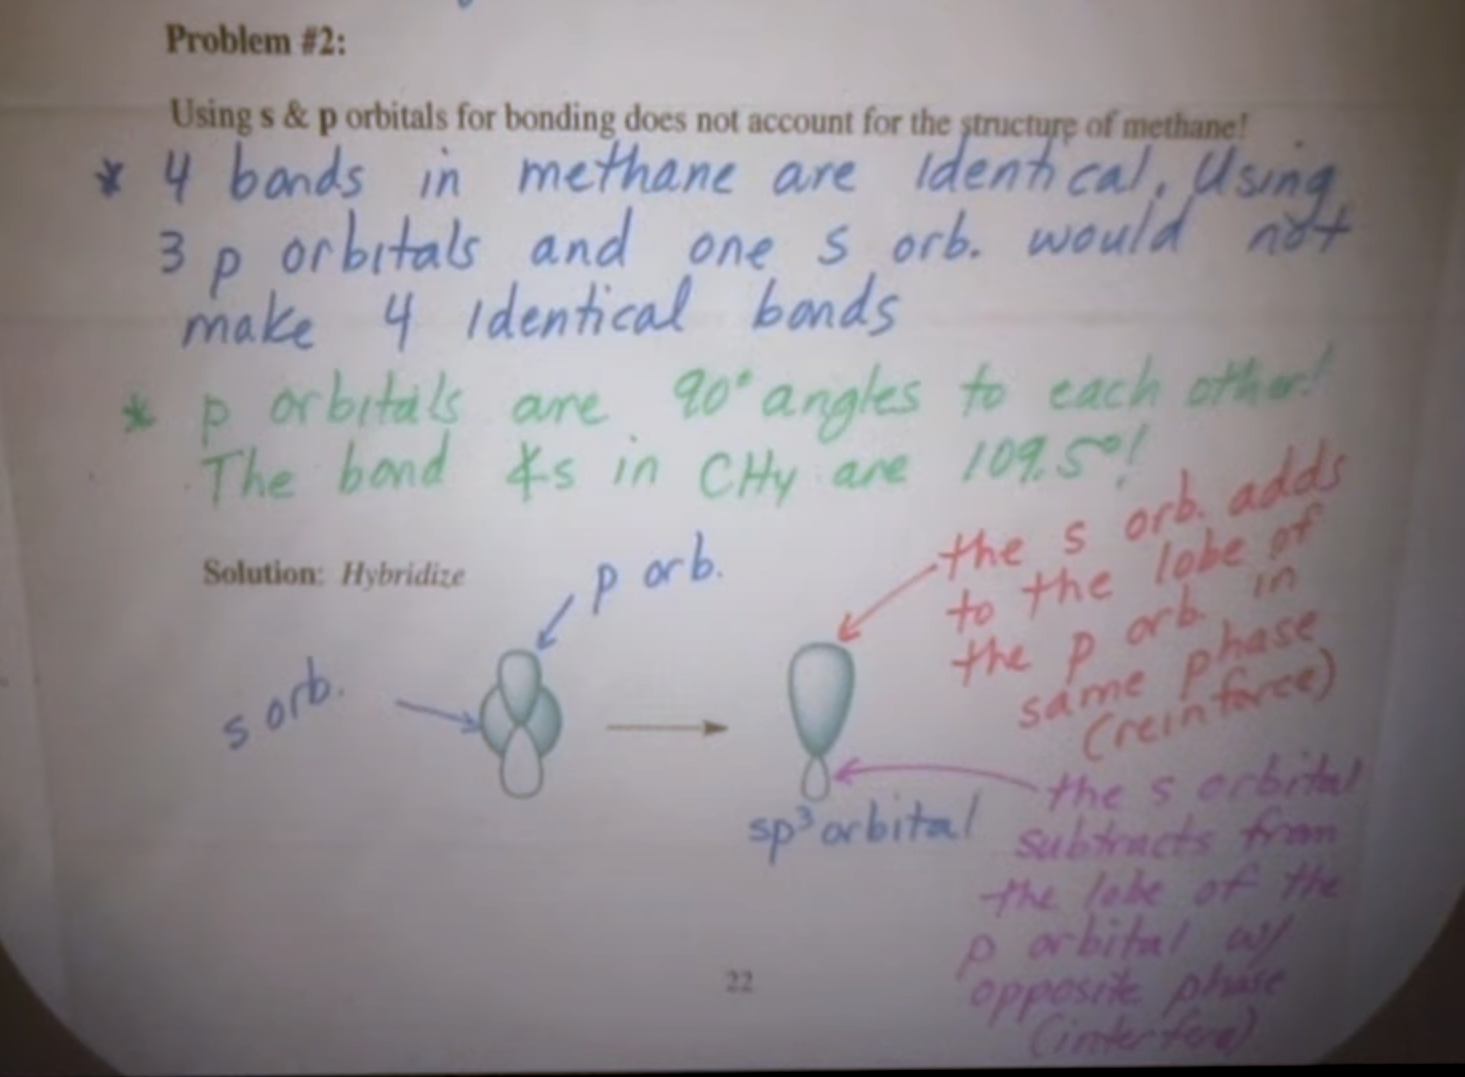 Problem #2:
Using s & p orbitals for bonding does not account for the structure of methane!
* 4 bonds in methane are identical. Using
3 p orbitals and one s orb. would not
make 4 identical bonds
* p orbitals are 90° angles to each other!
The bond ∡s in CH4 are 109.5°!
Solution: Hybridize
p orb.
s orb.
the s orb. adds
to the lobe of
the p orb. in
same phase
(reinforce)
sp³ orbital
the s orbital
subtracts from
the lobe of the
p orbital w/
opposite phase
(interfere)
22